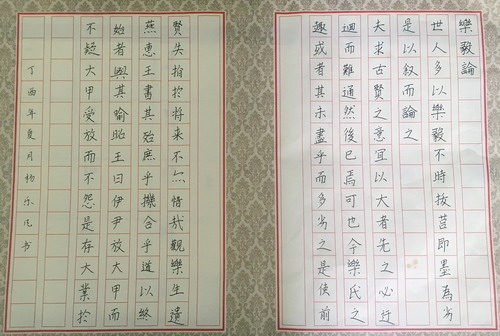 樂毅論
世人多以樂毅不時拔莒即墨為劣
是以叙而論之
夫求古賢之意宜以大者先之必迂
迴而難通然後已焉可也今樂氏之
趣或者其未盡乎而多劣之是使前
賢失指於将来不亦惜哉觀樂生遺
燕惠王書其殆庶乎機合乎道以終
始者與其喻昭王曰伊尹放大甲而
不疑大甲受放而不怨是存大業於
丁酉年夏月杨乐凡书